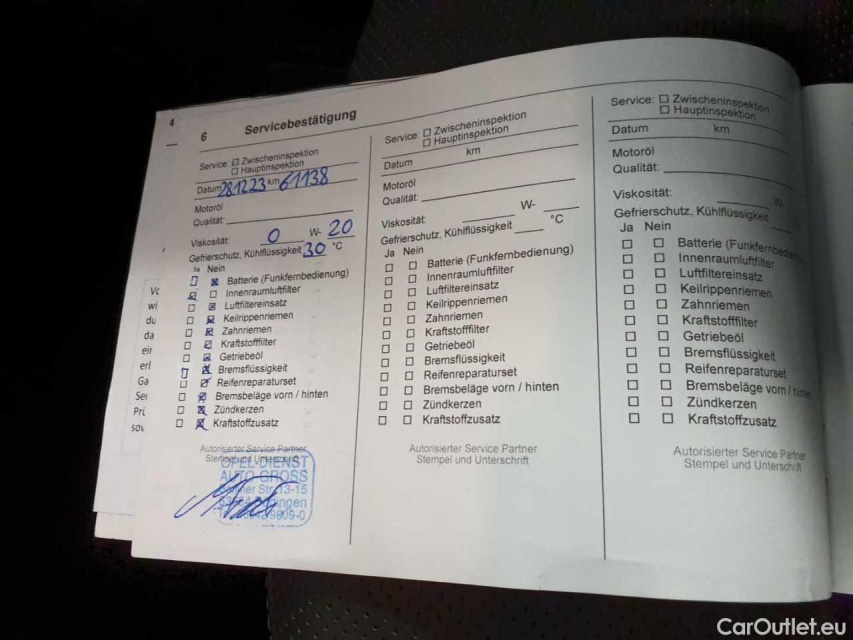 4
6 Servicebestätigung
Service: Zwischeninspektion
Hauptinspektion
Datum 281223 km 61138
Motoröl
Qualität:
Viskosität: 0 W- 20
Gefrierschutz, Kühlflüssigkeit 30 °C
Ja Nein
Batterie (Funkfernbedienung)
Innenraumluftfilter
Luftfiltereinsatz
Keilrippenriemen
Zahnriemen
Kraftstofffilter
Getriebeöl
Bremsflüssigkeit
Reifenreparaturset
Bremsbeläge vorn / hinten
Zündkerzen
Kraftstoffzusatz
Autorisierter Service Partner
Stempel und Unterschrift
OPEL-DIENST
AUTO GROSS
Str. 13-15
Service: Zwischeninspektion
Hauptinspektion
Datum km
Motoröl
Qualität:
Viskosität: W-
Gefrierschutz, Kühlflüssigkeit °C
Ja Nein
Batterie (Funkfernbedienung)
Innenraumluftfilter
Luftfiltereinsatz
Keilrippenriemen
Zahnriemen
Kraftstofffilter
Getriebeöl
Bremsflüssigkeit
Reifenreparaturset
Bremsbeläge vorn / hinten
Zündkerzen
Kraftstoffzusatz
Autorisierter Service Partner
Stempel und Unterschrift
Service: Zwischeninspektion
Hauptinspektion
Datum km
Motoröl
Qualität:
Viskosität: W-
Gefrierschutz, Kühlflüssigkeit
Ja Nein
Batterie (Funkfernbedienung)
Innenraumluftfilter
Luftfiltereinsatz
Keilrippenriemen
Zahnriemen
Kraftstofffilter
Getriebeöl
Bremsflüssigkeit
Reifenreparaturset
Bremsbeläge vorn / hinten
Zündkerzen
Kraftstoffzusatz
Autorisierter Service Partner
Stempel und Unterschrift
CarOutlet.eu